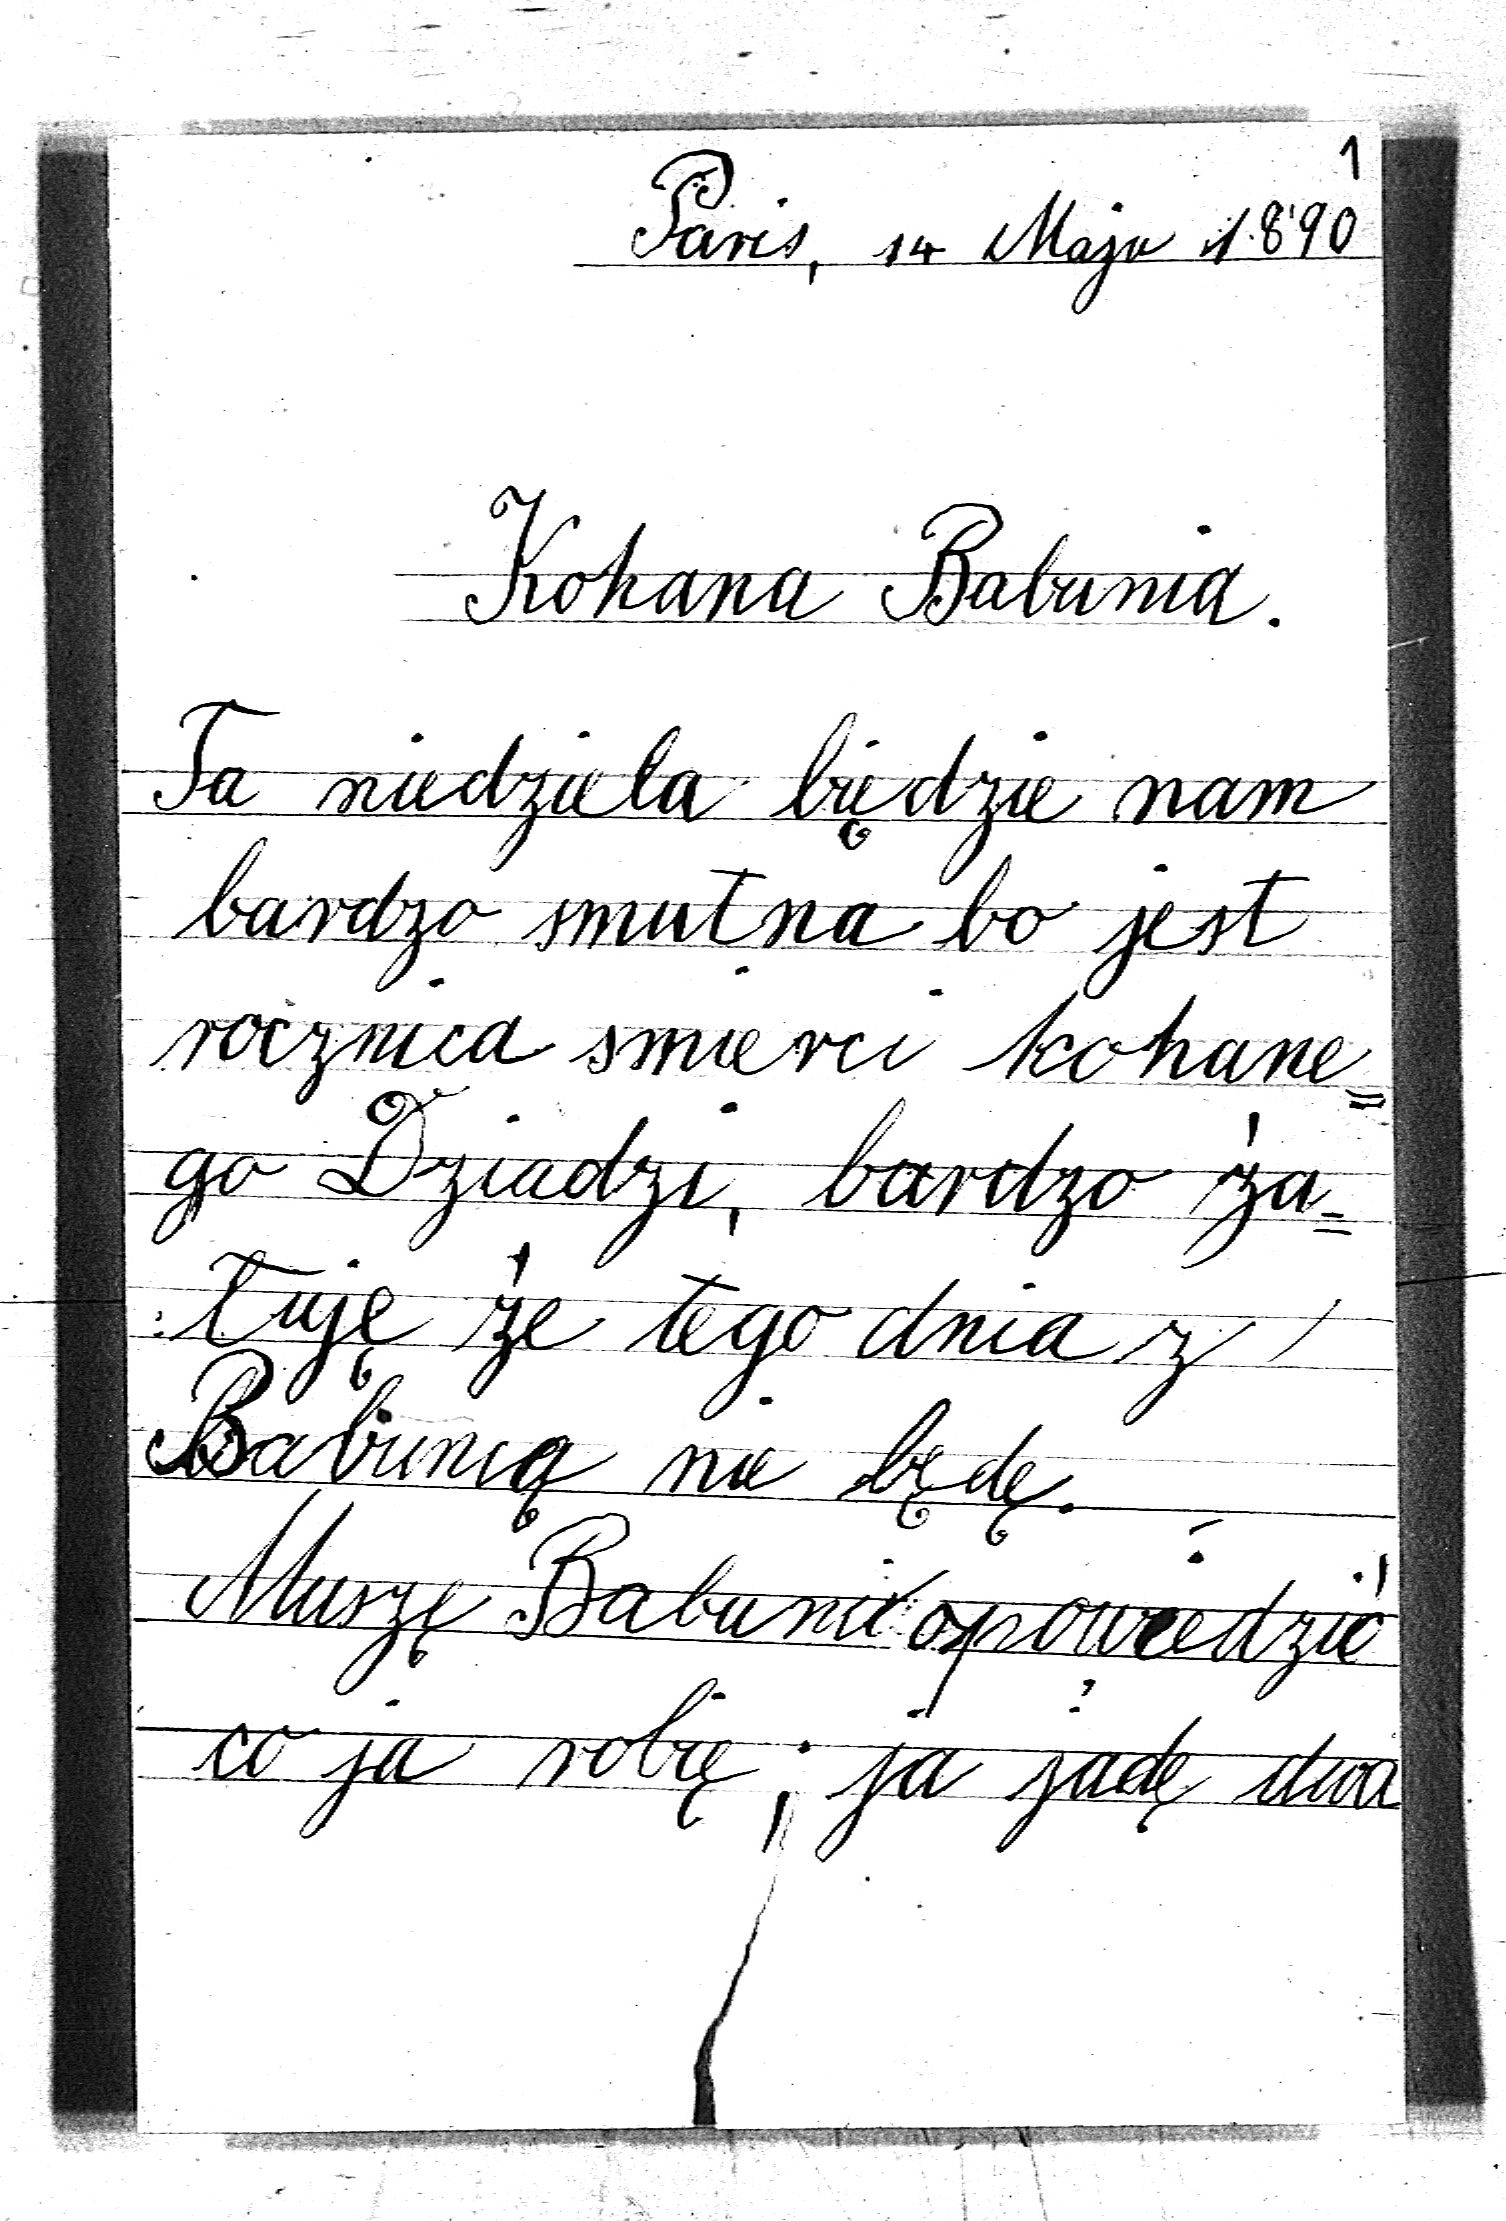 1
Paris, 14 Maja 1890
Kohana Babunia.
Ta niedziela będzie nam
bardzo smutna bo jest
rocznica smierci kohane=
go Dziadzi, bardzo ża=
łuję że tego dnia z
Babunią nie będę.
Muszę Babuni opowiedzić
co ja robię; ja jadę dwa